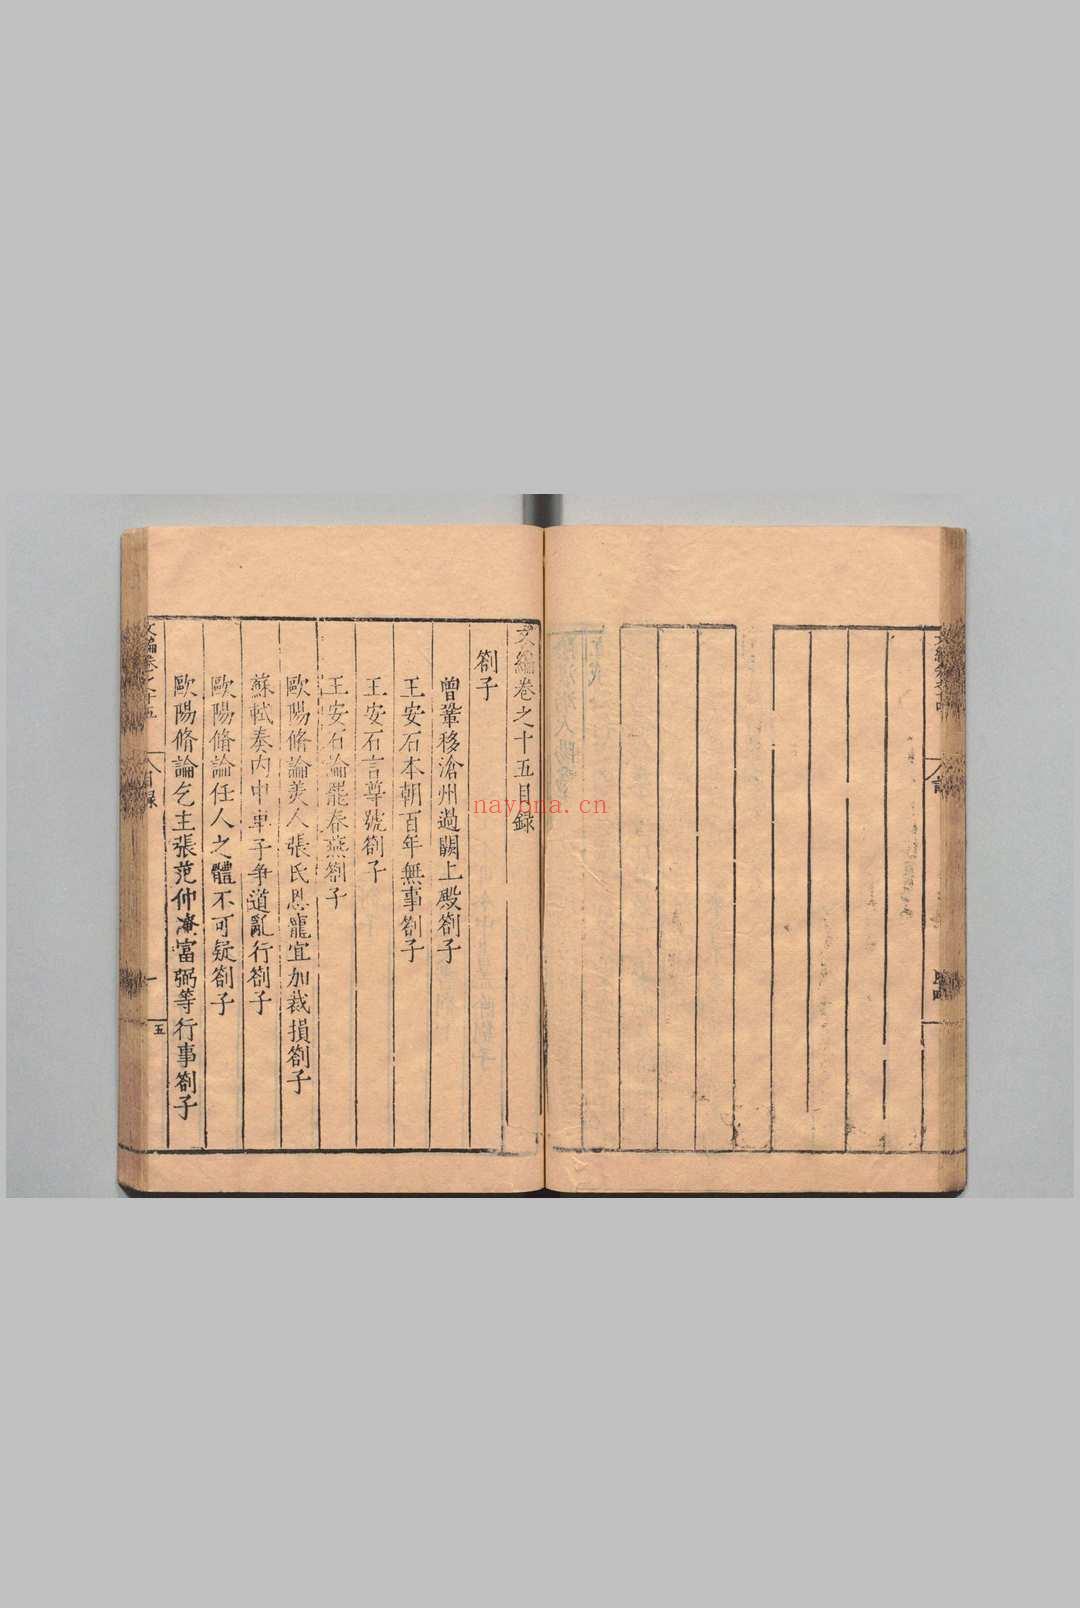 文編卷之十五目錄
劄子
曾鞏移滄州過闕上殿劄子
王安石本朝百年無事劄子
王安石言尊號劄子
王安石論罷春燕劄子
歐陽脩論美人張氏恩寵宜加裁損劄子
蘇軾奏內中車子爭道亂行劄子
歐陽脩論任人之體不可疑劄子
歐陽脩論乞主張范仲淹富弼等行事劄子
文編卷之十五
目錄
一
五
nayona.cn